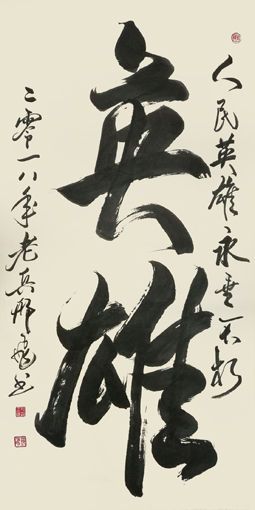 人民英雄永垂不朽
英雄
二零一八年老兵邢书